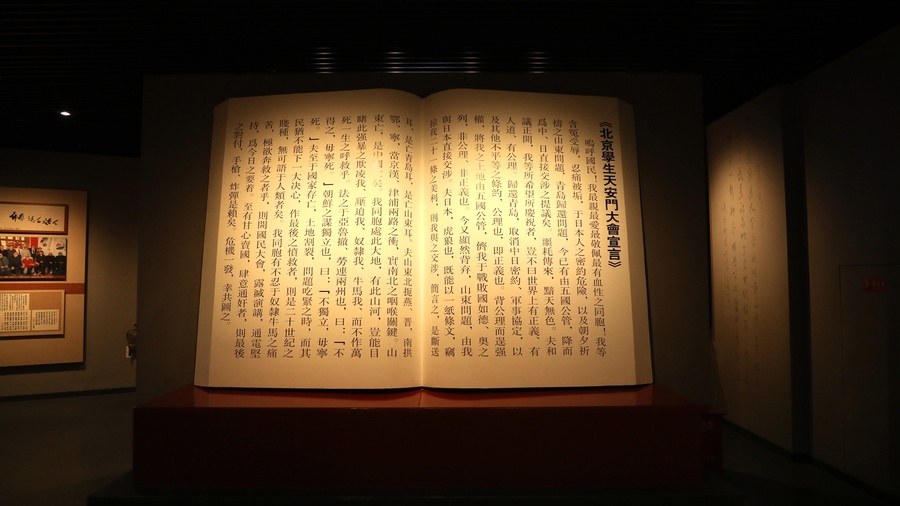 《北京學生天安門大會宣言》
嗚呼國民！我最親最愛最敬佩最有血性之同胞！我等
含冤受辱，忍痛被垢，于日本人之密約危險，以及朝夕祈
禱之山東問題，青島歸還問題，今已有由五國公管，降而
爲中、日直接交涉之提議矣。噩耗傳來，黯天無色。夫和
議正開，我等所希望所慶祝者，豈不曰世界上有正義、有
人道、有公理，歸還青島，取消中日密約，軍事協定，以
及其他不平等之條約，公理也，即正義也。背公理而逞強
權，將我之土地由五國公管，儕我于戰敗國如德、奧之
列，非公理，非正義也。今又顯然背弃，山東問題，由我
與日本直接交涉。夫日本，虎狼也，既能以一紙條文，竊
掠我二十一條之美利，則我與之交涉，簡言之，是斷送
耳，是亡青島耳，是亡山東耳。夫山東北扼燕、晋，南拱
鄂、寧，當京漢、津浦兩路之衝，實南北之咽喉關鍵。山
東亡，是中國亡矣。我同胞處此大地，有此山河，豈能目
睹此強暴之欺凌我，壓迫我，奴隸我，牛馬我，而不作萬
死一生之呼救乎？法之于亞魯撒、勞連兩州也，曰：「不
得之，毋寧死。」朝鮮之謀獨立也，曰：「不獨立，毋寧
死。」夫至于國家存亡、土地割裂、問題吃緊之時，而其
民猶不能下一大决心，作最後之憤救者，則是二十世紀之
賤種，無可語于人類者矣。我同胞有不忍于奴隸牛馬之痛
苦，極欲奔救之者乎？則開國民大會，露滅演講，通電堅
持，爲今日之要着。至有甘心賣國，肆意通奸者，則最後
之對付，手槍、炸彈是賴矣。危機一發，幸共圖之。